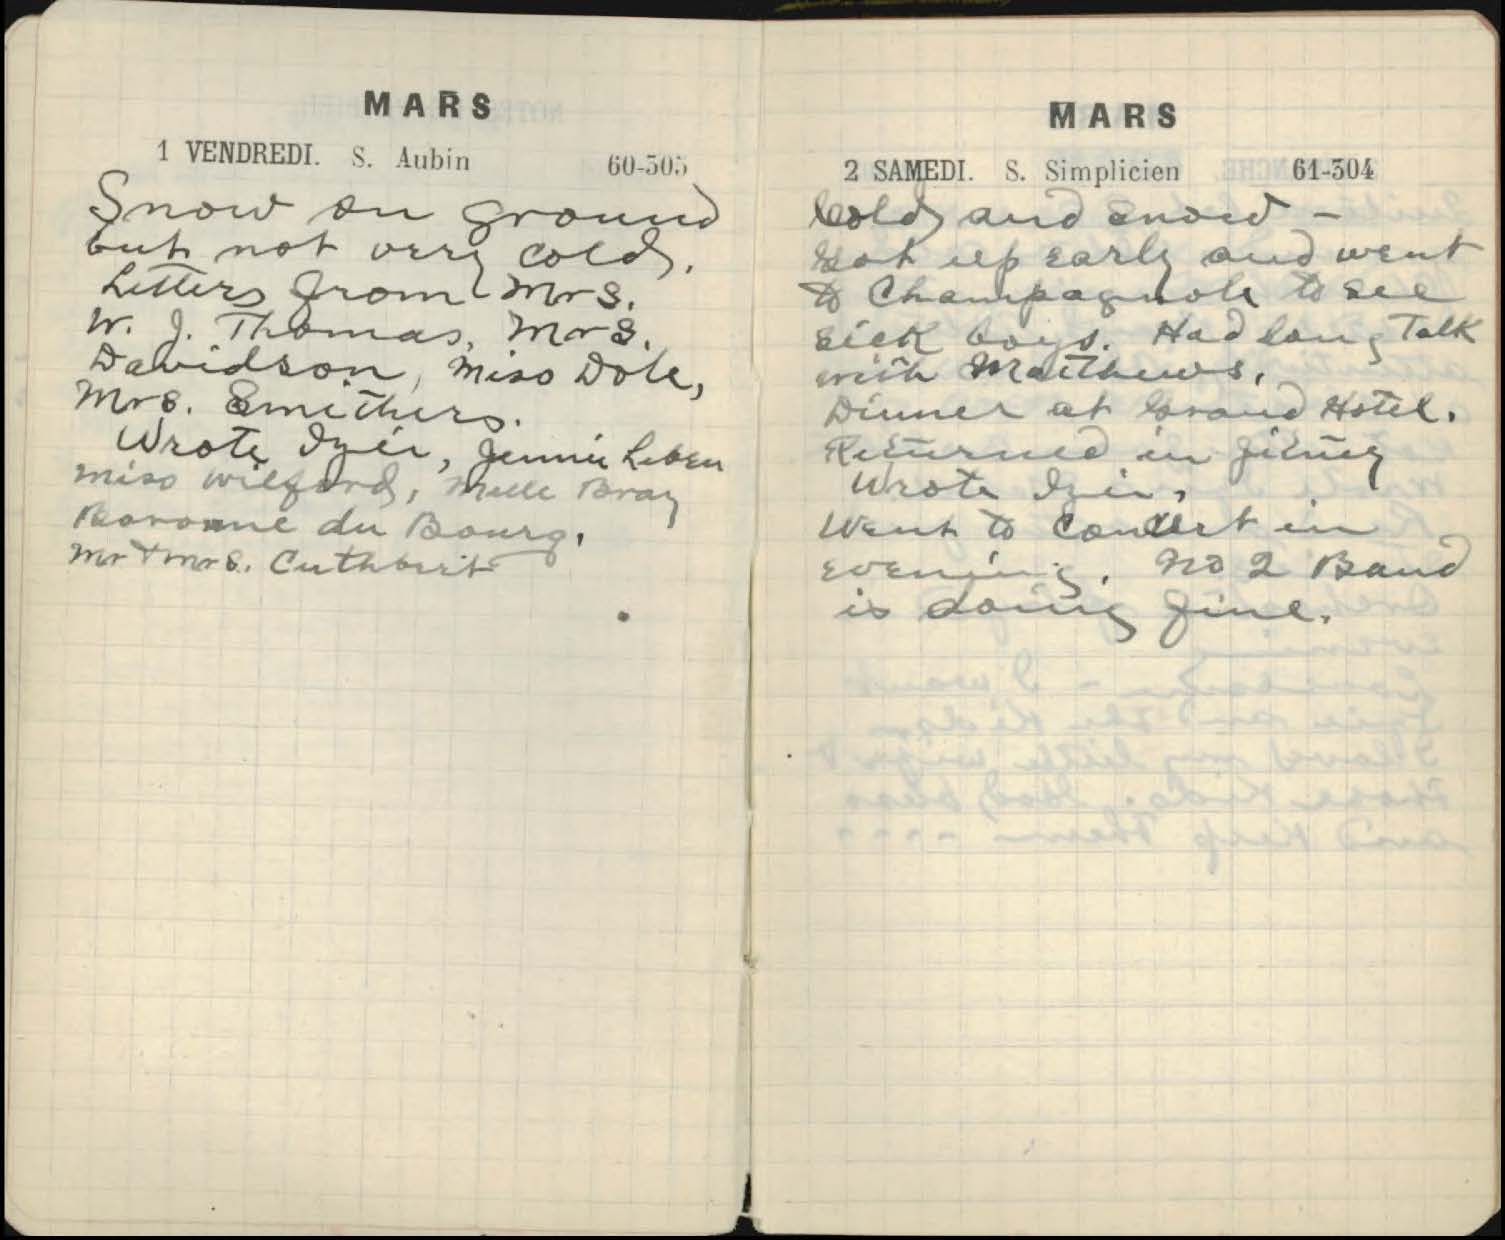 MARS
1 VENDREDI. S. Aubin 60-305
Snow on ground
but not very cold.
Letters from Mrs.
W. J. Thomas, Mrs.
Davidson, Miss Dole,
Mrs. Smithers.
Wrote Izie, Jennie Leben
Miss Wilford, Mlle Bray
Baronne du Bourg.
Mr + Mrs. Cuthbert
MARS
2 SAMEDI. S. Simplicien 61-304
Cold and snow -
Got up early and went
to Champagnole to see
sick boys. Had long Talk
with Matthews.
Dinner at Grand Hotel.
Returned in jitney
Wrote Izie.
Went to Concert in
evening. No 2 Band
is doing fine.